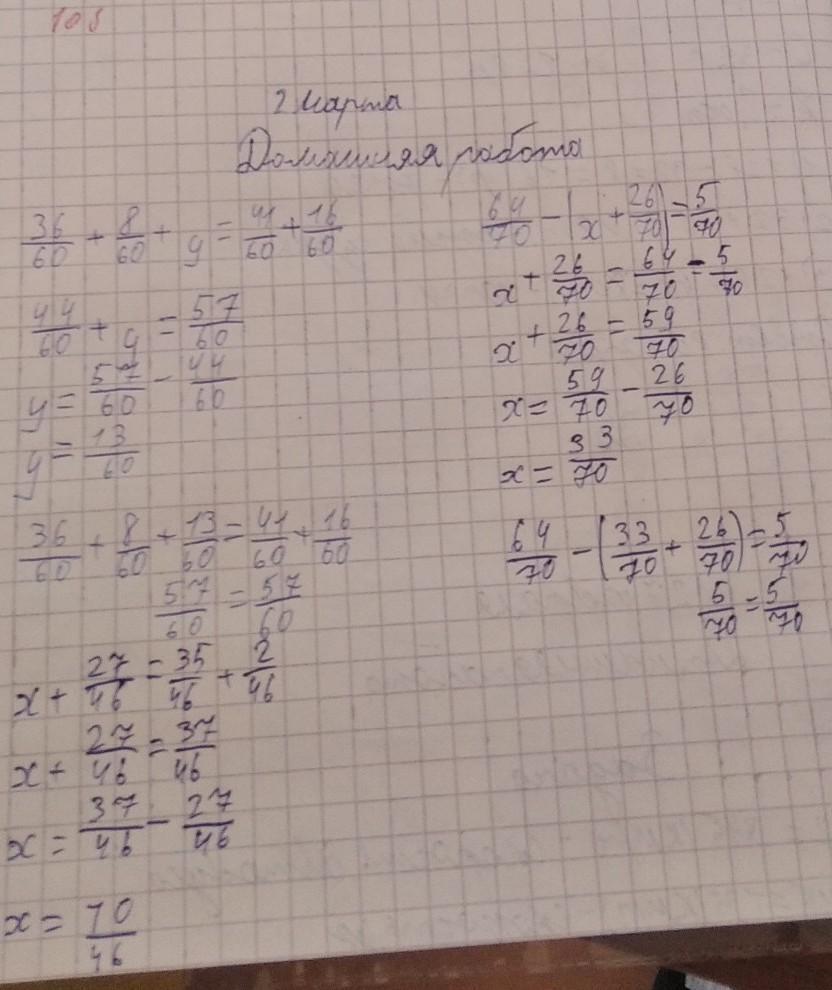 108
2 марта
Домашняя работа
36/60 + 8/60 + y = 41/60 + 16/60
44/60 + y = 57/60
y = 57/60 - 44/60
y = 13/60
36/60 + 8/60 + 13/60 = 41/60 + 16/60
57/60 = 57/60
x + 27/46 = 35/46 + 2/46
x + 27/46 = 37/46
x = 37/46 - 27/46
x = 10/46
64/70 - (x + 26/70) = 5/70
x + 26/70 = 64/70 - 5/70
x + 26/70 = 59/70
x = 59/70 - 26/70
x = 33/70
64/70 - (33/70 + 26/70) = 5/70
5/70 = 5/70